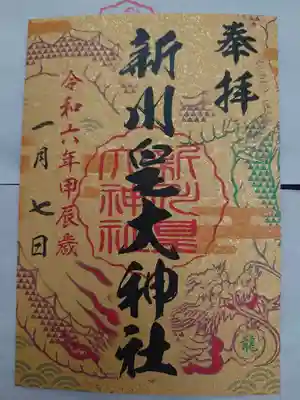 奉拝
新川皇大神社
令和六年甲辰歳
一月七日
新川皇
大神社
龍